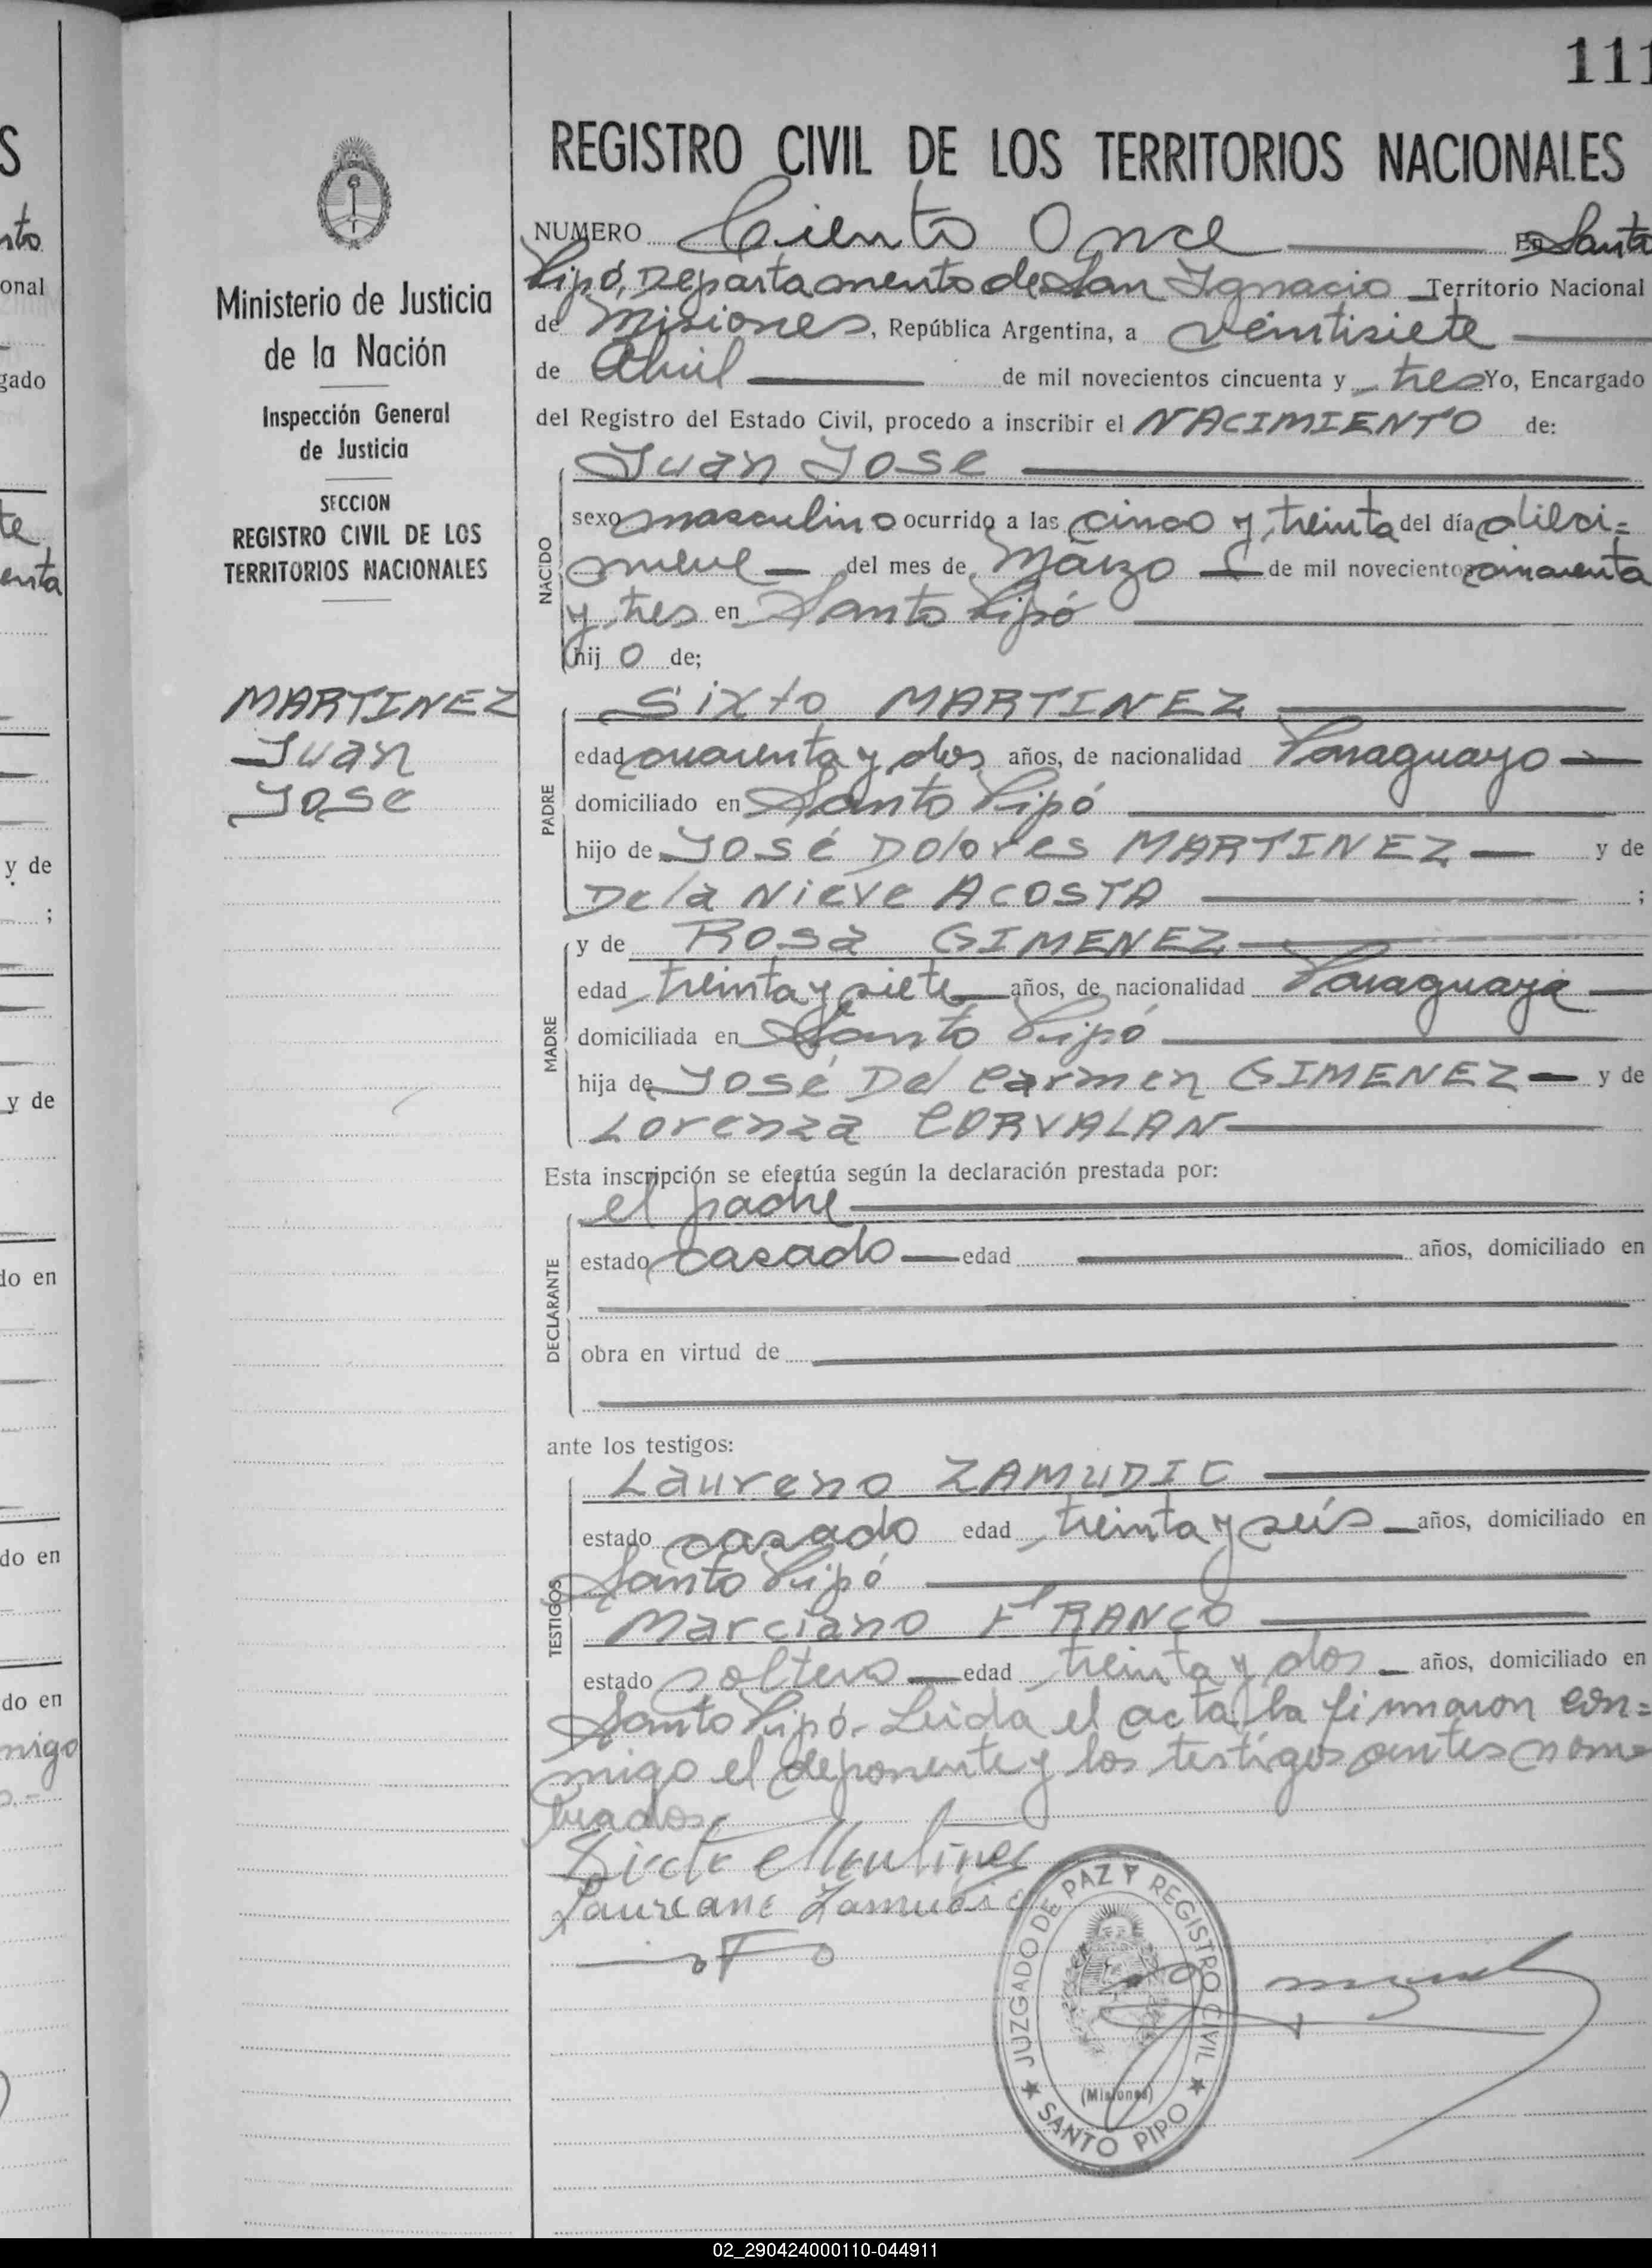 111
REGISTRO CIVIL DE LOS TERRITORIOS NACIONALES
NUMERO Ciento Once En Santo
Pipó, Departamento de San Ignacio Territorio Nacional
de Misiones, República Argentina, a veintisiete
de Abril de mil novecientos cincuenta y tres Yo, Encargado
del Registro del Estado Civil, procedo a inscribir el NACIMIENTO de:
Juan Jose
NACIDO
sexo masculino ocurrido a las cinco y treinta del día dieci=
nueve del mes de Marzo de mil novecientos cincuenta
y tres en Santo Pipó
hij o de;
Sixto MARTINEZ
PADRE
edad cuarenta y dos años, de nacionalidad Paraguayo
domiciliado en Santo Pipó
hijo de José Dolores MARTINEZ y de
De la Nieve ACOSTA ;
y de Rosa GIMENEZ
MADRE
edad treinta y siete años, de nacionalidad Paraguaya
domiciliada en Santo Pipó
hija de José Del Carmen GIMENEZ y de
Lorenza CORVALAN
Esta inscripción se efectúa según la declaración prestada por:
el padre
DECLARANTE
estado casado edad años, domiciliado en
obra en virtud de
ante los testigos:
Laureno ZAMUDIO
TESTIGOS
estado casado edad treinta y seis años, domiciliado en
Santo Pipó
Marciano FRANCO
estado soltero edad treinta y dos años, domiciliado en
Santo Pipó. Leída el acta la firmaron con=
migo el deponente y los testigos antes nom=
brados.
Sixto Martinez
Laureano Zamudio
F
JUZGADO DE PAZ Y REGISTRO CIVIL
(Misiones)
SANTO PIPO
Ministerio de Justicia
de la Nación
Inspección General
de Justicia
SECCION
REGISTRO CIVIL DE LOS
TERRITORIOS NACIONALES
MARTINEZ
Juan
Jose
02_290424000110-044911